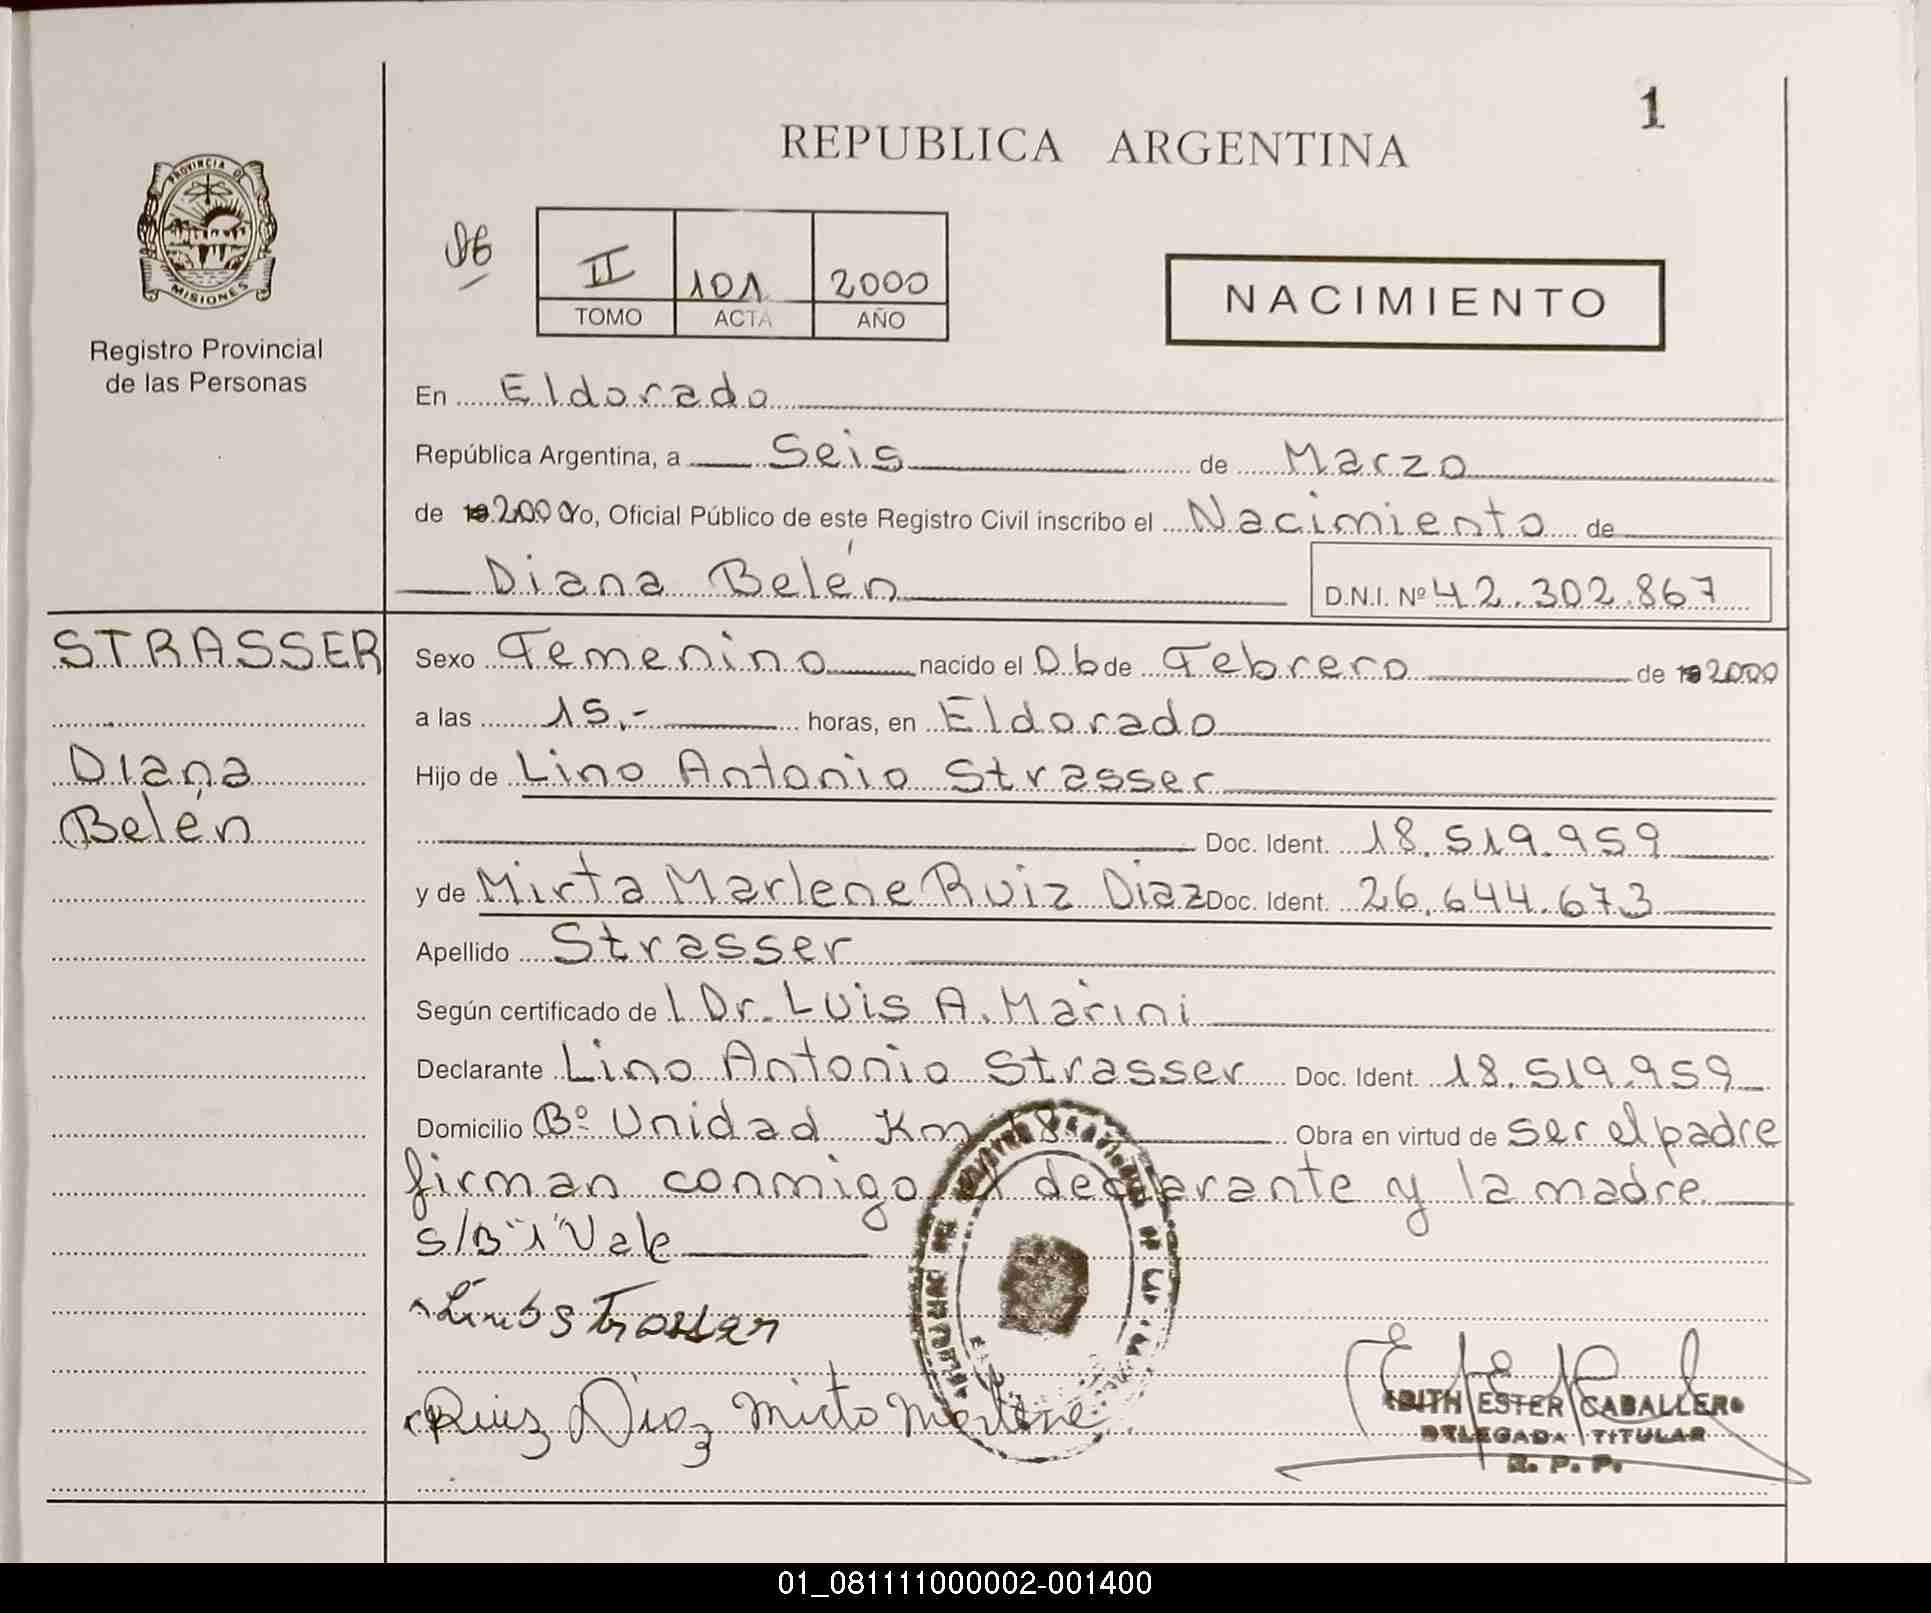 1
REPUBLICA ARGENTINA
PROVINCIA DE
MISIONES
Registro Provincial
de las Personas
II 101 2000
TOMO ACTA AÑO
NACIMIENTO
En Eldorado
República Argentina, a Seis de Marzo
de 19 2000 Yo, Oficial Público de este Registro Civil inscribo el Nacimiento de
Diana Belén D.N.I. Nº 42.302.867
STRASSER
Diana
Belén
Sexo Femenino nacido el 06 de Febrero de 19 2000
a las 15.- horas, en Eldorado
Hijo de Lino Antonio Strasser
Doc. Ident. 18.519.959
y de Mirta Marlene Ruiz Diaz Doc. Ident. 26.644.673
Apellido Strasser
Según certificado de l Dr. Luis A. Marini
Declarante Lino Antonio Strasser Doc. Ident. 18.519.959
Domicilio Bº Unidad Km 18 Obra en virtud de ser el padre
firman conmigo el declarante y la madre
s/B "1" Vale
Lino Strasser
Ruiz Diaz Mirta Marlene
EDITH ESTER CABALLERO
DELEGADA TITULAR
R. P. P.
01_081111000002-001400